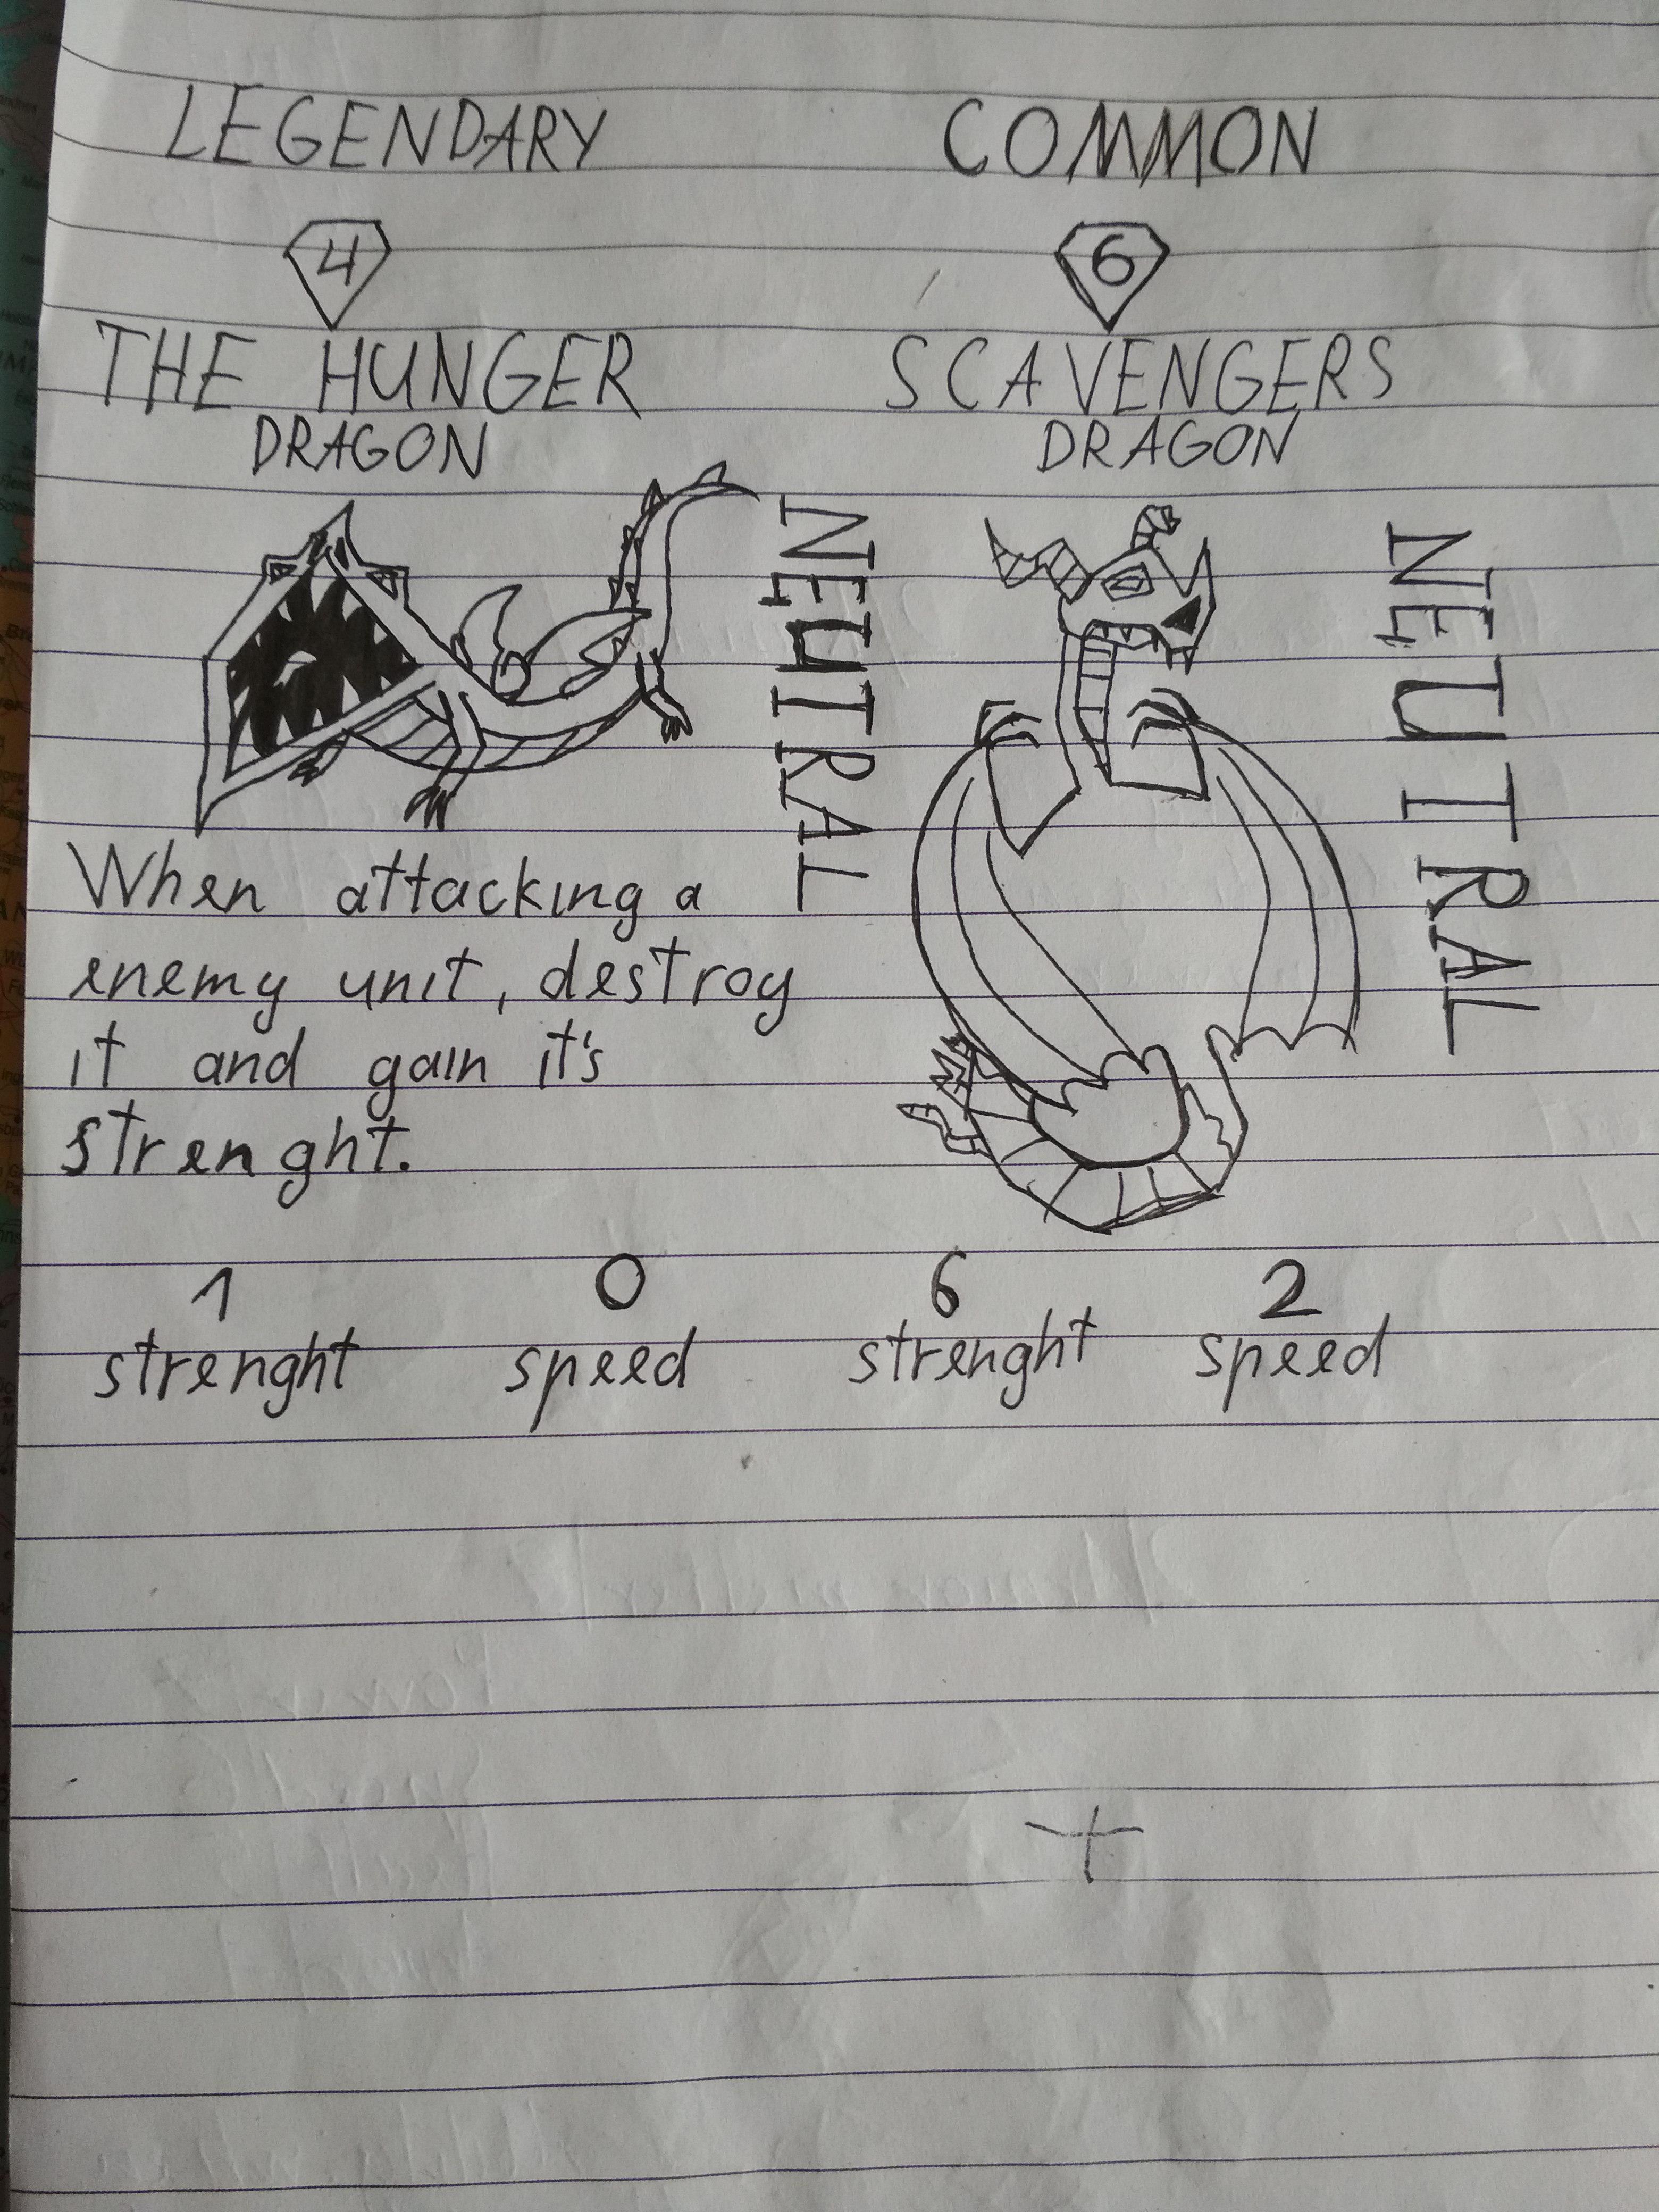 LEGENDARY
4
THE HUNGER
DRAGON
NEUTRAL
When attacking a
enemy unit, destroy
it and gain it's
strenght.
1 0
strenght speed
COMMON
6
SCAVENGERS
DRAGON
NEUTRAL
6 2
strenght speed